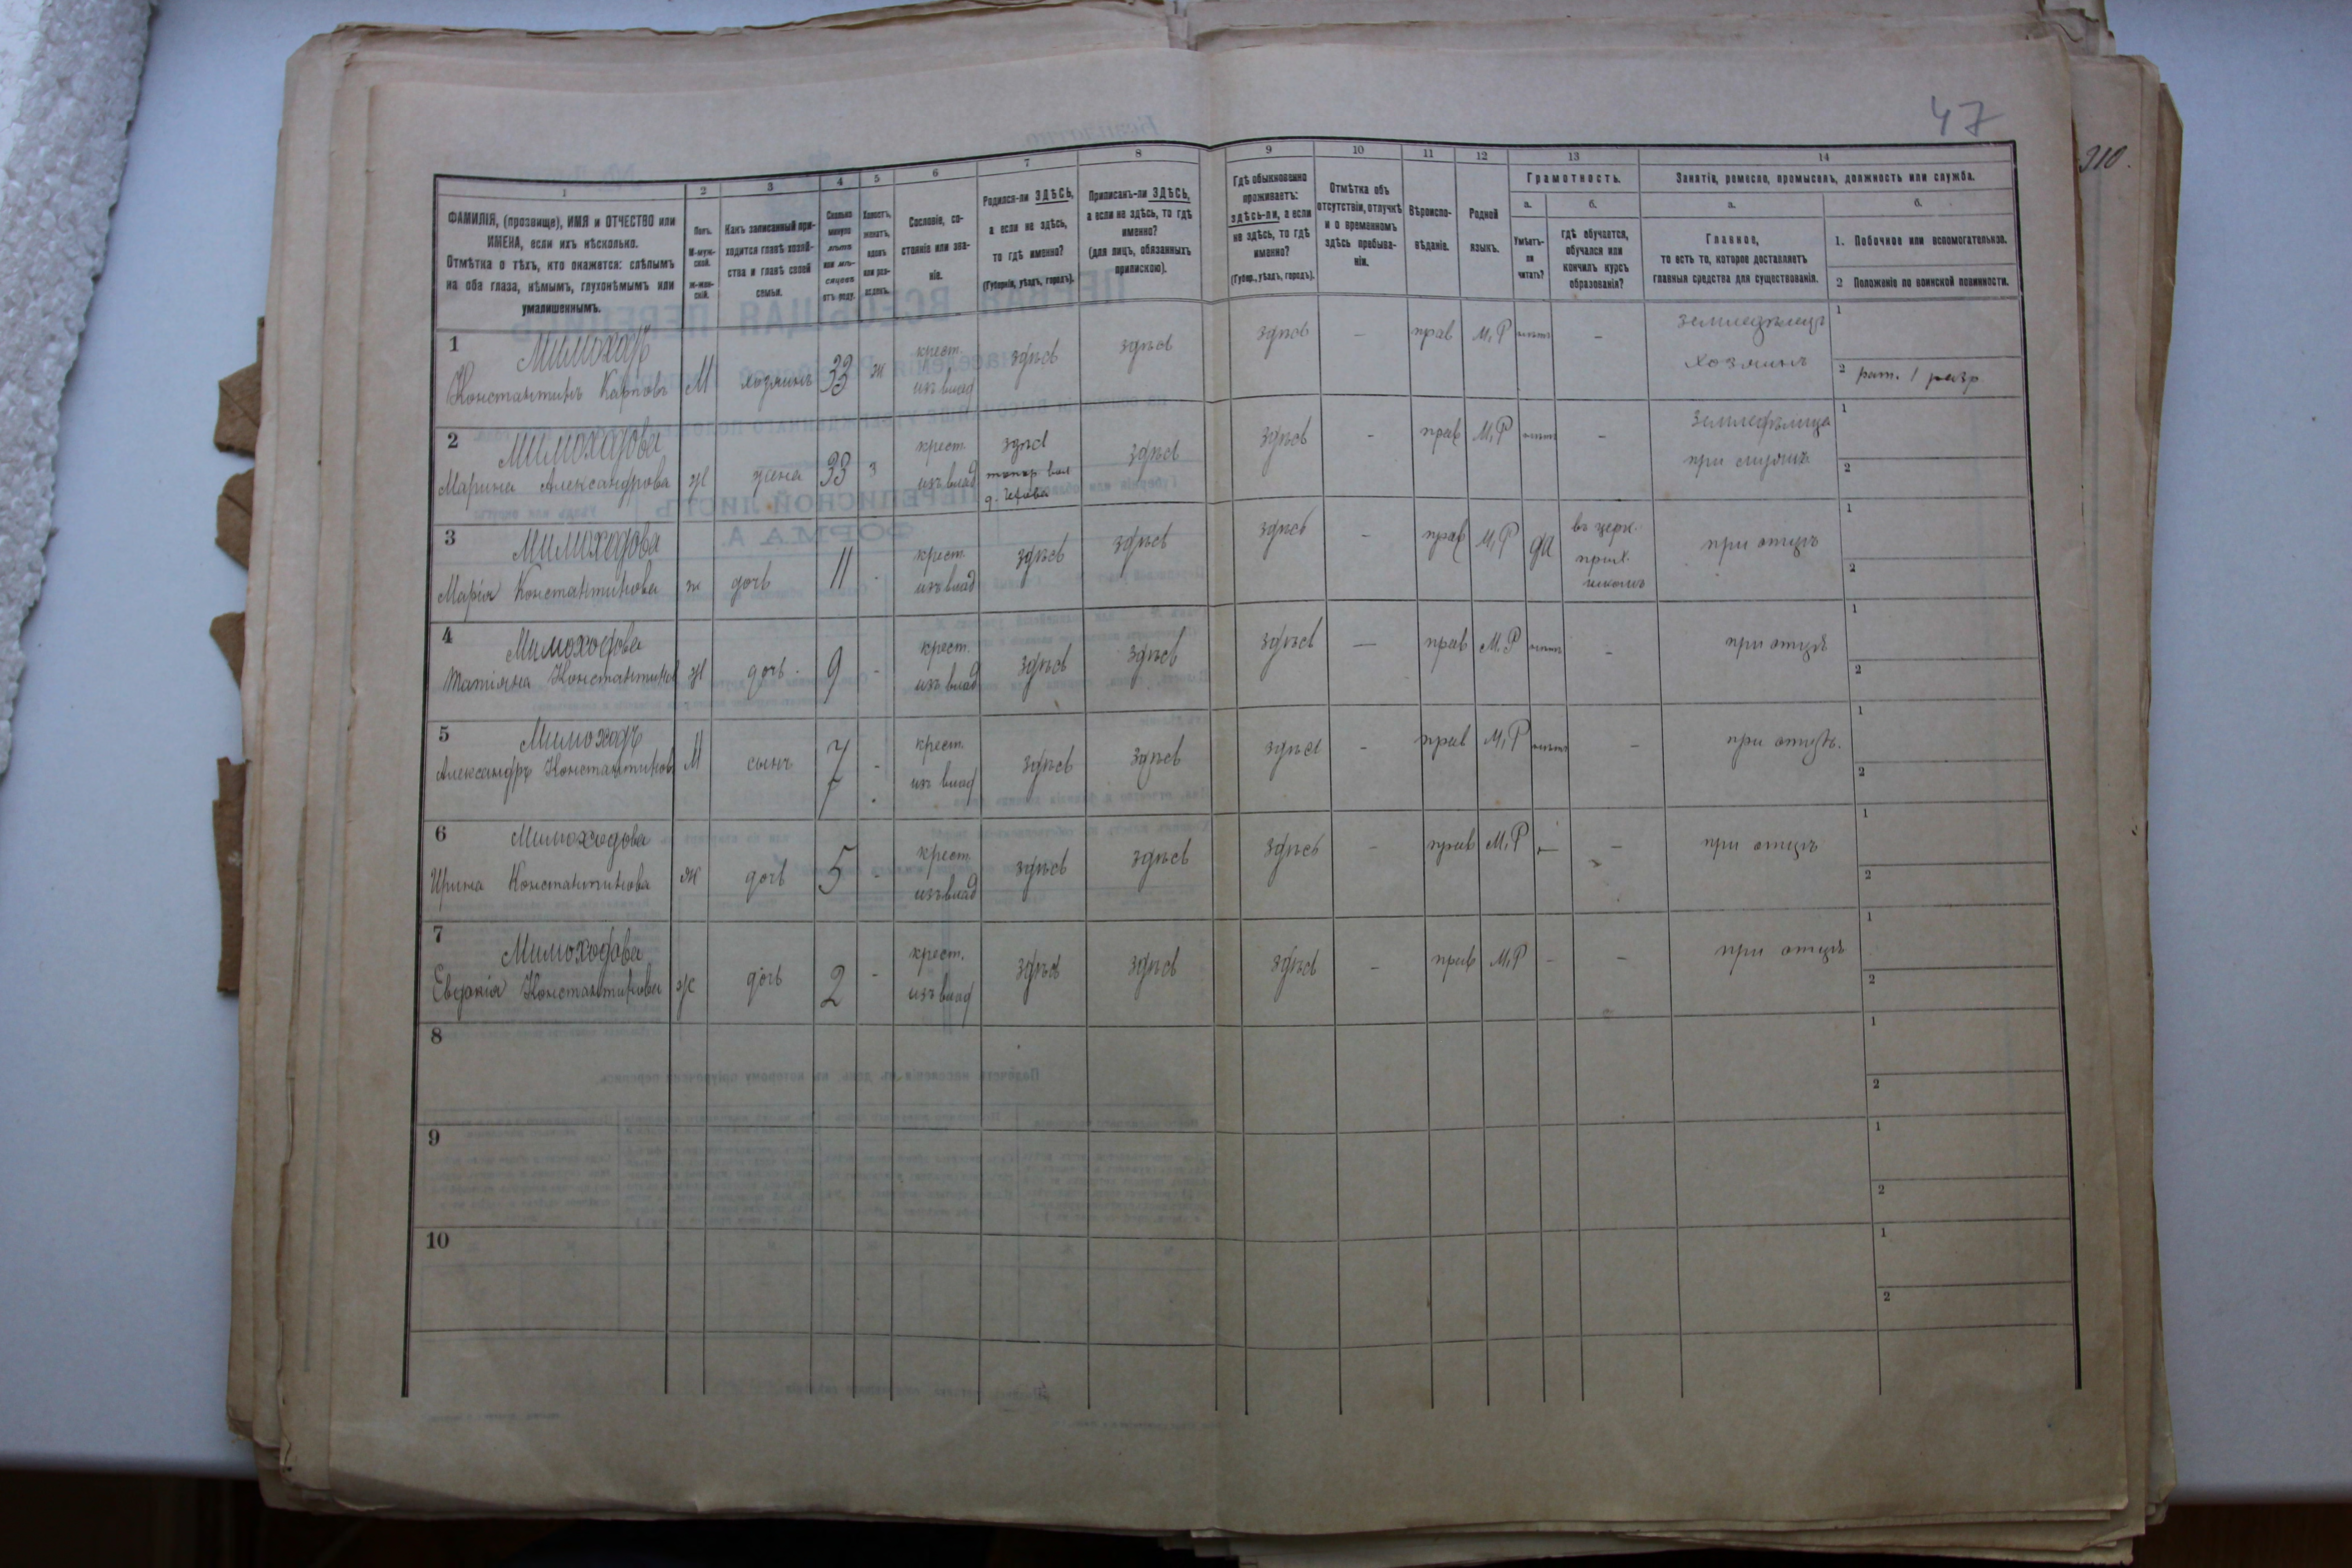 47
310.
1 2 3 4 5 6 7 8 9 10 11 12 13 14
ФАМИЛІЯ, (прозвище), ИМЯ и ОТЧЕСТВО или ИМЕНА, если ихъ нѣсколько.
Отмѣтка о тѣхъ, кто окажется: слѣпымъ на оба глаза, нѣмымъ, глухонѣмымъ или умалишеннымъ.
Полъ. М-мужской. Ж-женскій.
Какъ записанный приходится главѣ хозяйства и главѣ своей семьи.
Сколько минуло лѣтъ или мѣсяцевъ отъ роду.
Холостъ, женатъ, вдовъ или разведенъ.
Сословіе, состояніе или званіе.
Родился-ли ЗДѢСЬ, а если не здѣсь, то гдѣ именно?
(Губернія, уѣздъ, городъ).
Приписанъ-ли ЗДѢСЬ, а если не здѣсь, то гдѣ именно?
(для лицъ, обязанныхъ припискою).
Гдѣ обыкновенно проживаетъ: здѣсь-ли, а если не здѣсь, то гдѣ именно?
(Губер., уѣздъ, городъ).
Отмѣтка объ отсутствіи, отлучкѣ и о временномъ здѣсь пребываніи.
Вѣроисповѣданіе.
Родной языкъ.
Грамотность.
а. Умѣетъ-ли читать?
б. гдѣ обучается, обучался или кончилъ курсъ образованія?
Занятія, ремесло, промыселъ, должность или служба.
а. Главное, то есть то, которое доставляетъ главныя средства для существованія.
б. 1. Побочное или вспомогательное.
2 Положеніе по воинской повинности.
1 Мимоходъ
Константинъ Карповъ М хозяинъ 33 ж крест. изъ влад здѣсь здѣсь здѣсь — прав М,Р нѣтъ – земледѣлецъ хозяинъ 1
2 рат. 1 разр.
2 Мимоходова
Марина Александрова ж жена 33 з крест. изъ влад здѣсь здѣсь здѣсь – прав М,Р нѣтъ – 1 2
3 Мимоходова
Марія Константинова ж дочь 11 - крест. изъ влад здѣсь здѣсь здѣсь – прав М,Р да въ церк. прих. школѣ при отцѣ 1 2
4 Мимоходова
Татіяна Константинов ж дочь 9 - крест. изъ влад здѣсь здѣсь здѣсь — прав М.Р нѣтъ – при отцѣ 1 2
5 Мимоходъ
Александръ Константинов М сынъ 7 - крест. изъ влад здѣсь здѣсь здѣсь – прав М,Р нѣтъ – при отцѣ. 1 2
6 Мимоходова
Ирина Константинова ж дочь 5 - крест изъ влад здѣсь здѣсь здѣсь – прав М,Р – – при отцѣ 1 2
7 Мимоходова
Евдокія Константинова ж дочь 2 - крест. изъ влад здѣсь здѣсь здѣсь – прав М,Р – – при отцѣ 1 2
8 1 2
9 1 2
10 1 2